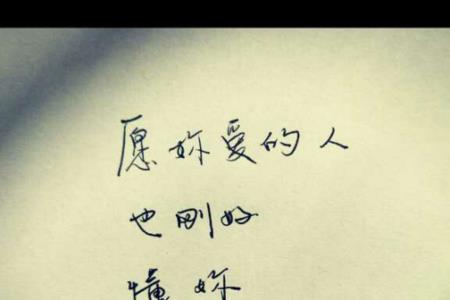 愿妳爱的人
也刚好
懂妳